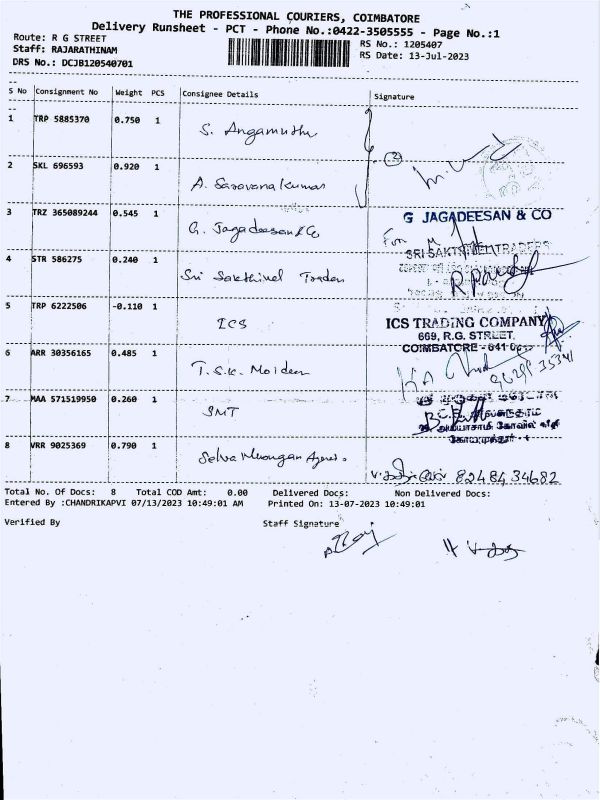 THE PROFESSIONAL COURIERS, COIMBATORE
Delivery Runsheet - PCT - Phone No.:0422-3505555 - Page No.:1
Route: R G STREET
RS No.: 1205407
Staff: RAJARATHINAM
RS Date: 13-Jul-2023
DRS No.: DCJB120540701
S No Consignment No Weight PCS Consignee Details Signature
1 TRP 5885370 0.750 1 S. Angamuthu
2 SKL 696593 0.920 1 A. Saravana kumar
3 TRZ 365089244 0.545 1 G. Jagadeesan & Co
G JAGADEESAN & CO
For
4 STR 586275 0.240 1 Sri Sakthivel Traders
SRI SAKTHIVEL TRADERS
5 TRP 6222506 -0.110 1 ICS
ICS TRADING COMPANY
669, R.G. STREET,
COIMBATORE - 641
6 ARR 30356165 0.485 1 T.S.K. Moideen
7 MAA 571519950 0.260 1 SMT
8 VRR 9025369 0.790 1 Selva Murugan Agenc.
82484 34682
Total No. Of Docs: 8 Total COD Amt: 0.00 Delivered Docs: Non Delivered Docs:
Entered By :CHANDRIKAPVI 07/13/2023 10:49:01 AM Printed On: 13-07-2023 10:49:01
Verified By Staff Signature